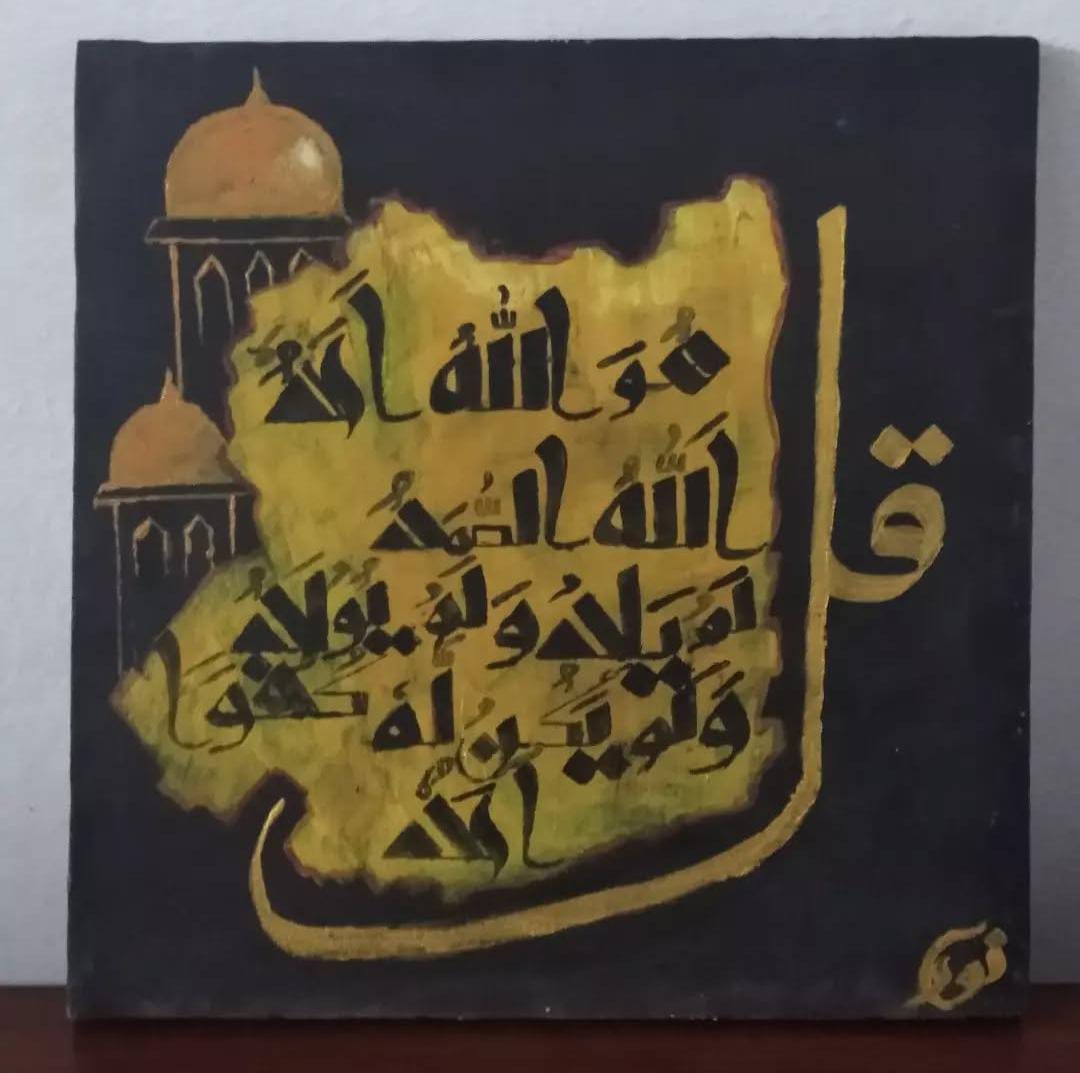 قُلْ
هُوَ اللّٰهُ أَحَدٌ
اَللّٰهُ الصَّمَدُ
لَمْ يَلِدْ وَلَمْ يُولَدْ
وَلَمْ يَكُنْ لَهُ كُفُوًا
أَحَدٌ